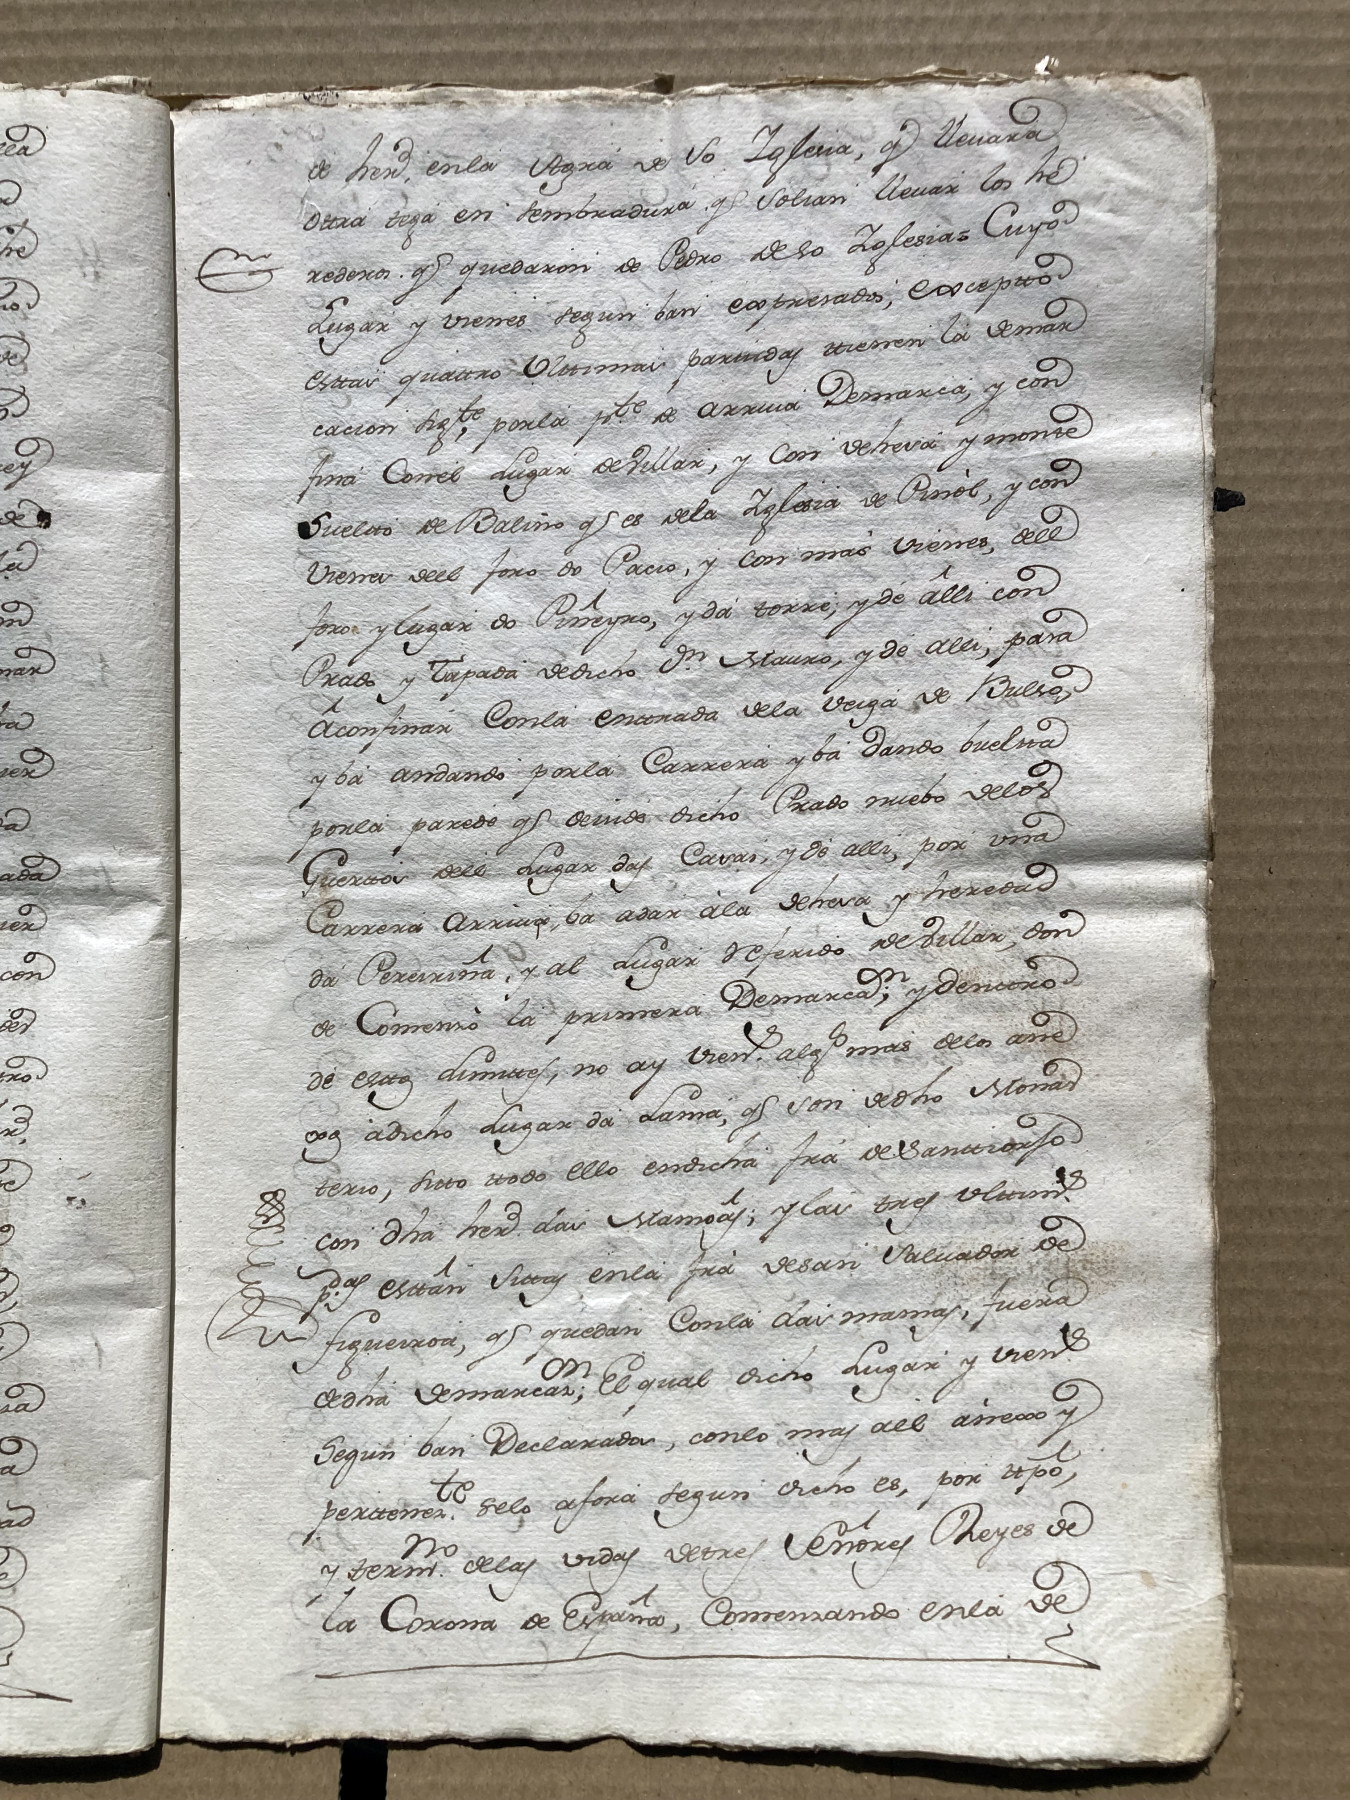 de herd. enla Agra de So Iglesia, q.e lleuara
ottra tega en sembradura q.e solian lleuar los he
rederos q.e quedaron de Pedro de So Iglesia= Cuyo
Lugar y vienes segun ban expresados, excepto
esttas quattro Ulttimas partidas ttienen la demar
cacion sig.te, porla p.te de arriua Demarca, y con
fina Conel Lugar de Villar, y Con dehesa y monte
Suelto de Baliño q.e es dela Iglesia de Piñol, y con
vienes dell foro do Pacio, y Con mas vienes, dell
foro y lugar do Piñeyro, y da torre, y de alli con
Prado y Tapada dedicho D.n Mauro, y de alli, para
A confinar Conla enttrada dela veiga de Bulso,
y ba andando porla Carrera y ba dando buelta
porla parede q.e deuide dicho Prado nuebo delos
Guerttos dell Lugar das Cavas, y de alli, por una
Carrera arriua, ba adar ala dehesa y heredad
da Pereiriña, y al Lugar referido de Villar, don
de Comenzò la primera Demarca.on; y denttro
de estos Limittes, no ay vien.s alg.s mas delos ane
xos adicho Lugar da Lama, q.e son dedho Monas
terio, sitto ttodo ello endicha fra de Santtiorjo
con dha herd. das Mamoas; y las tres ulttim.s
p.das esttàn sittas enla fra desan Saluador de
figueiroa, q.e quedan Conla das mamas, fuera
dedha demarcaz.on; El qual dicho Lugar y vien.s
segun ban Declarados, conlo mas a el anexo y
perttenez.te selo afora segun dicho es, por ttpô,
y termi.no delas vidas detres Señores Reyes de
la Corona de España, Comenzando enla de